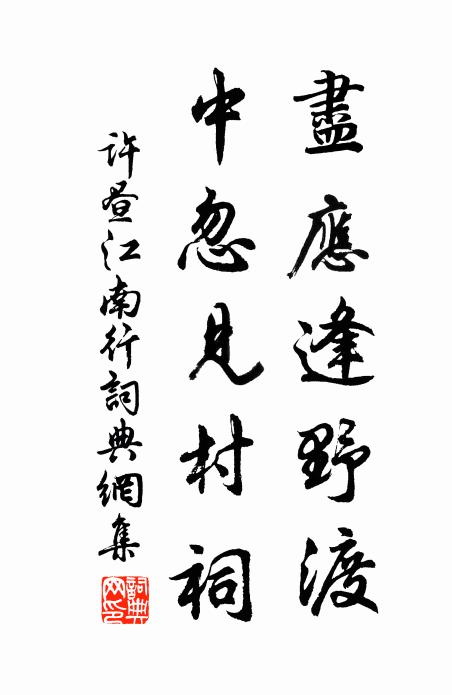 盡應逢野渡
中忽見村祠
許昼江南行詞典網集
詞典网印